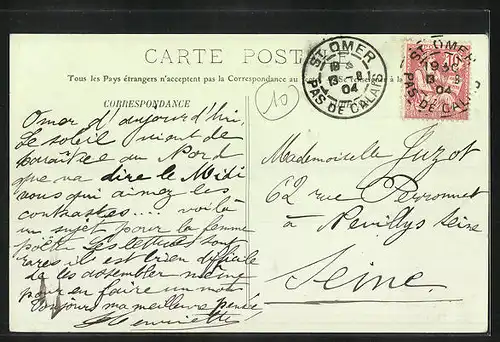 CARTE POST
Tous les Pays étrangers n'acceptent pas la Correspondance au
à la
CORRESPONDANCE
10
ST OMER
13 8
04
PAS DE CALAIS
ST OMER
13 8
04
PAS DE CALAIS
Omer d'aujourd'hui
Le soleil vient de
au Nord
que va dire le Midi
vous qui aimez les
contrastes.... voilà
un sujet pour la femme
poète Les lettres sont
rares il est bien difficile
de les assembler même
pour en faire un mot
Toujours ma meilleure pensée
Henriette
Mademoiselle Juzot
62 rue Perronnet
à Neuilly s Seine
Seine